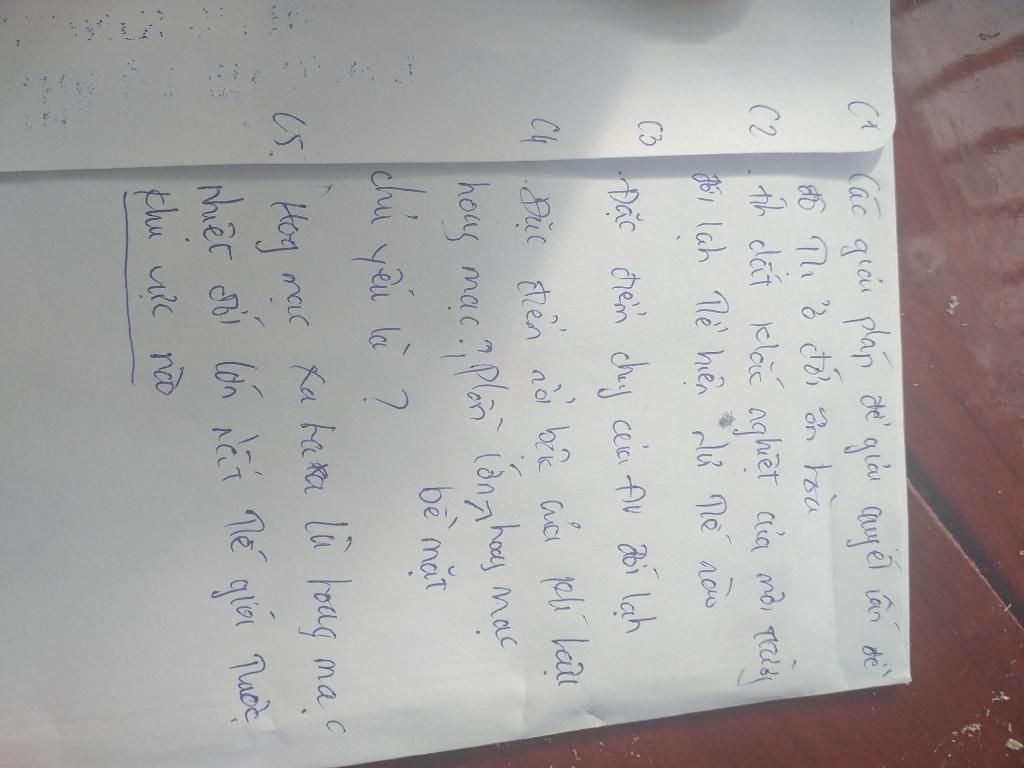 C1 Các giải pháp để giải quyết vấn đề
đô thị ở đới ôn hòa
C2 . tính chất khắc nghiệt của môi trường
đới lạnh thể hiện như thế nào
C3 . Đặc điểm chung của ĐV đới lạnh
C4 . Đặc điểm nổi bậc của khí hậu
hoang mạc? Phần lớn bề mặt hoang mạc
chủ yếu là ?
C5. Hoang mạc Xa ha ra là hoang mạc
nhiệt đới lớn nhất thế giới thuộc
khu vực nào